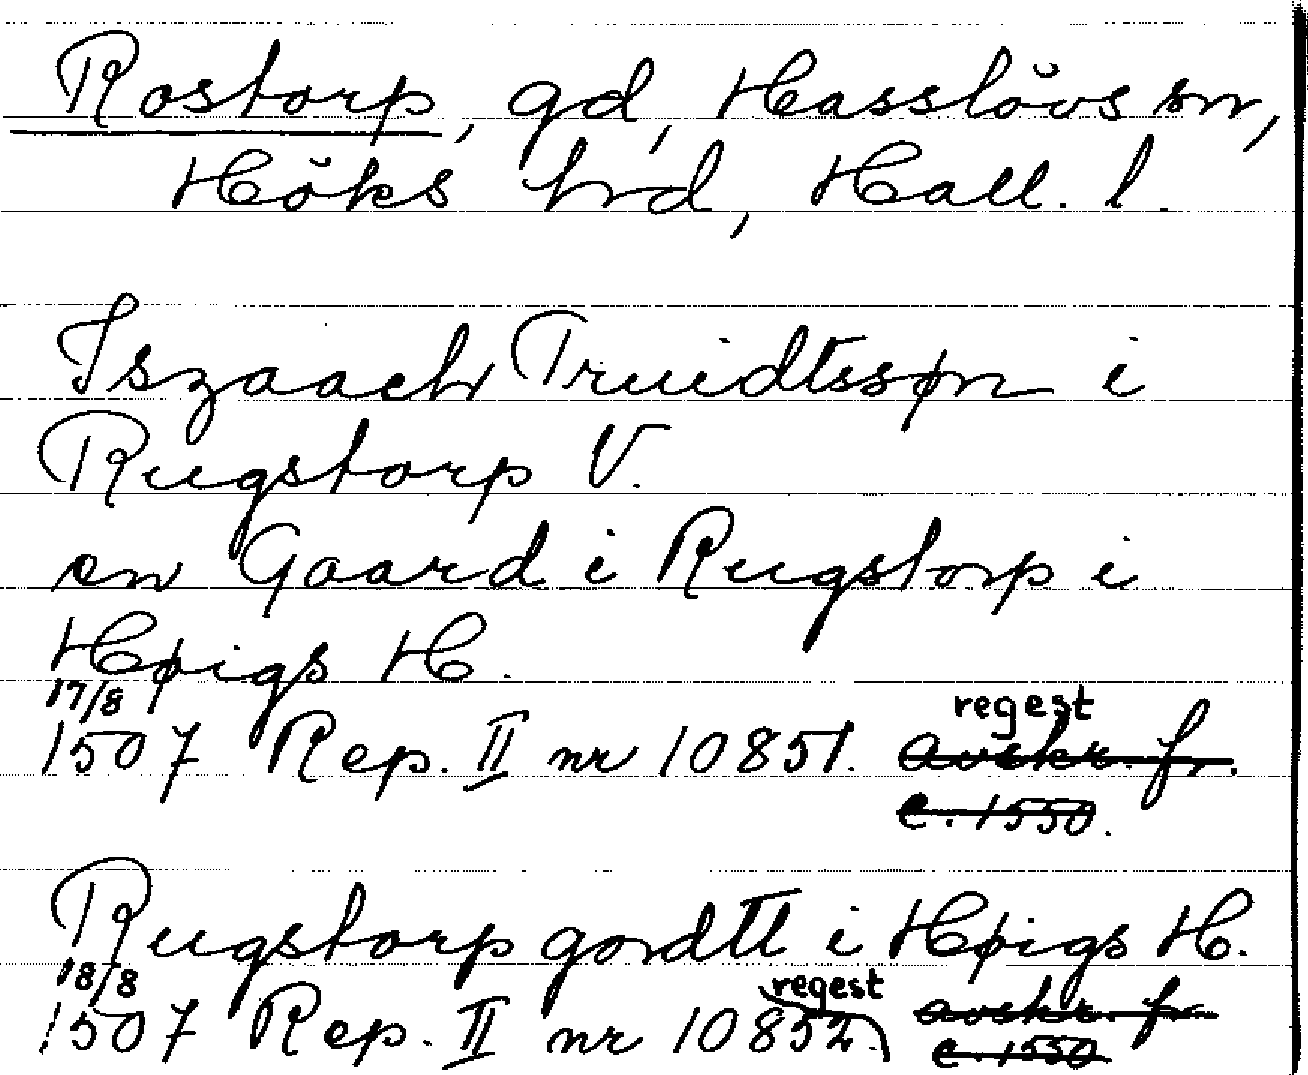 Rostorp, gd, Hasslövs sn,
Höks hrd, Hall. l.
Iszaach Truidtssøn i
Rugstorp V.
en Gaard i Rugstorp i
Høigs H.
17/8
regest
1507 Rep. II nr 10851. avskr. fr.
c. 1550.
Rugstorp gordtt i Høigs H.
18/8
regest
1507 Rep. II nr 10852. avskr. fr.
c. 1550